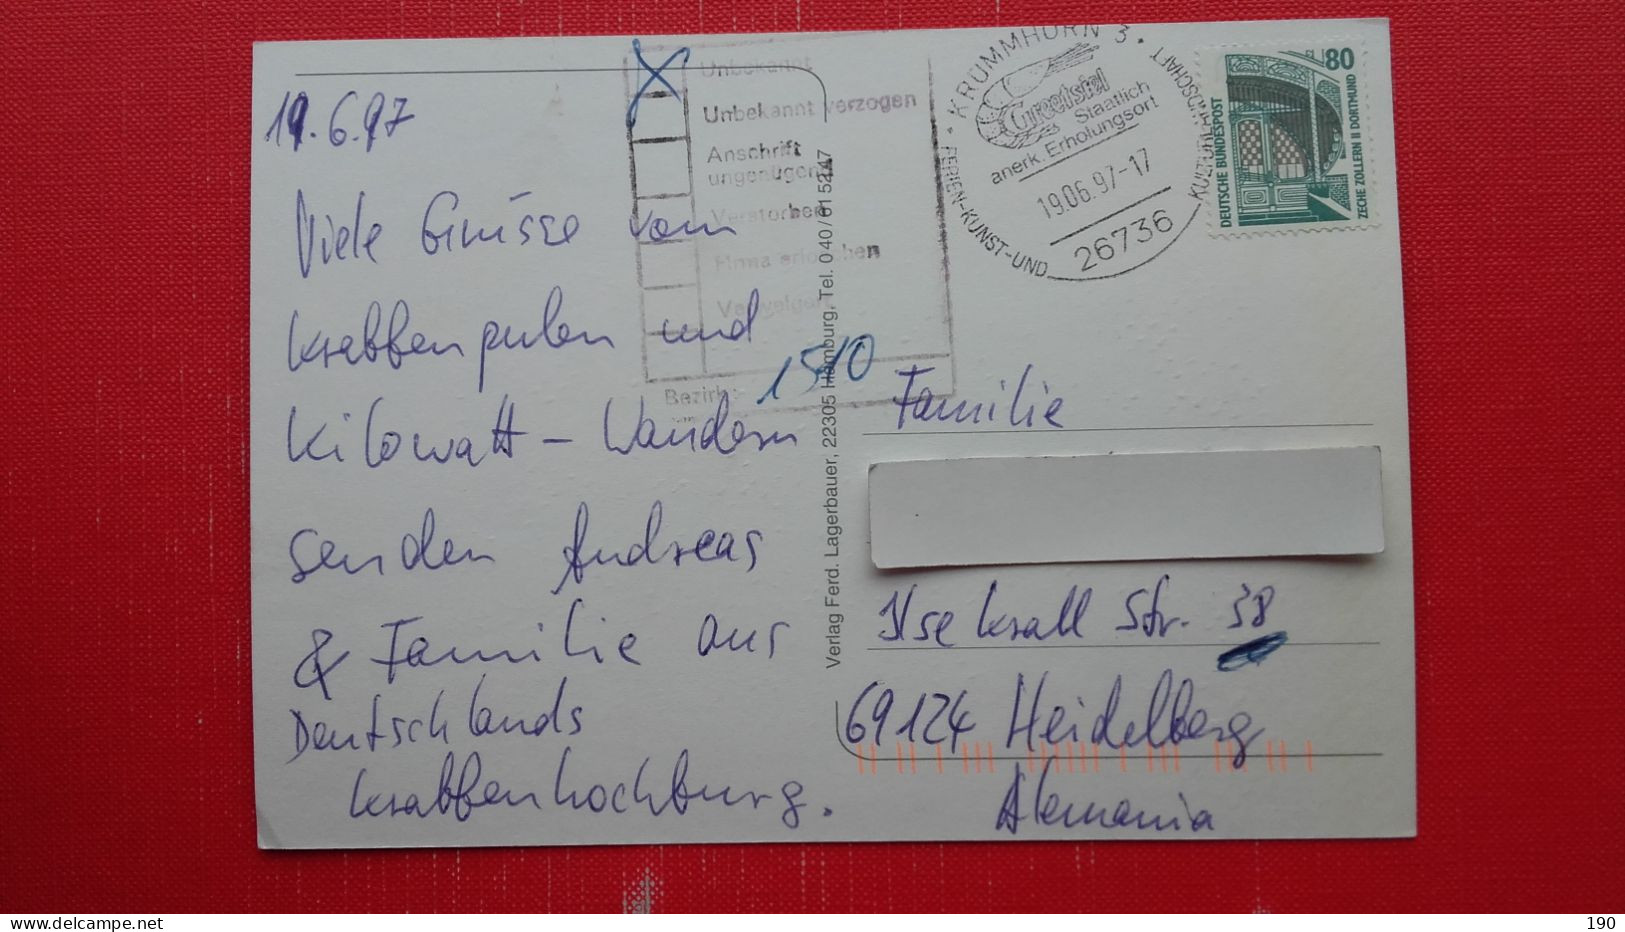 19.6.97
Viele Grüsse vom
Krabbenpulen und
Kilowatt-Wandern
senden Andreas
& Familie aus
Deutschlands
Krabbenhochburg.
Unbekannt
Unbekannt verzogen
Anschrift
ungenügend
Verstorben
Firma erloschen
Verweigert
Bezirk:
1510
Verlag Ferd. Lagerbauer, 22305 Hamburg, Tel. 040/6152 47
KRUMMHÖRN 3
Greetsiel
Staatlich
anerk. Erholungsort
19.06.97-17
26736
FERIEN-KUNST-UND KULTURLANDSCHAFT
80
DEUTSCHE BUNDESPOST
ZECHE ZOLLERN II DORTMUND
Familie
Ilse Krall Str. 38
69124 Heidelberg
Alemania
190